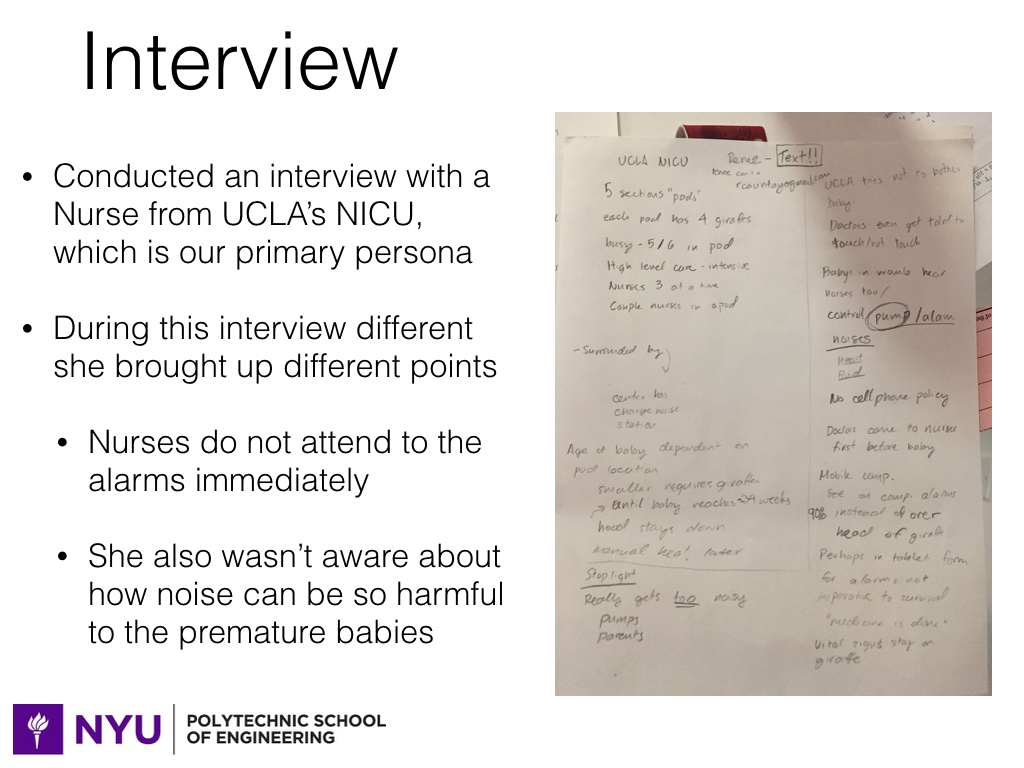 Interview
• Conducted an interview with a
Nurse from UCLA’s NICU,
which is our primary persona
• During this interview different
she brought up different points
• Nurses do not attend to the
alarms immediately
• She also wasn’t aware about
how noise can be so harmful
to the premature babies
NYU
POLYTECHNIC SCHOOL
OF ENGINEERING
UCLA NICU
Renee - Text!!
5 sections "pods"
each pod has 4 girafes
busy - 5/6 in pod
High level care - intensive
Nurses 3 at a time
Couple nurses in a pod
- Surrounded by
center has
charge nurse
station
Age of baby dependent on
pod location
smaller requires giraffe
until baby reaches 34 weeks
hood stays down
manual heat later
Stoplight
Really gets too noisy
pumps
parents
UCLA tries not to bother
baby.
Doctors even get told to
touch/not touch
Babys in womb hear
noises too/
control pump/alarm
noises
Heart
fluid
No cell phone policy
Doctors come to nurse
first before baby
Mobile comp.
see on comp. alarms
90% instead of over
head of giraffe
Perhaps in tablet form
for alarms not
imperative to survival
"medicine is done"
Vital signs stay on
giraffe